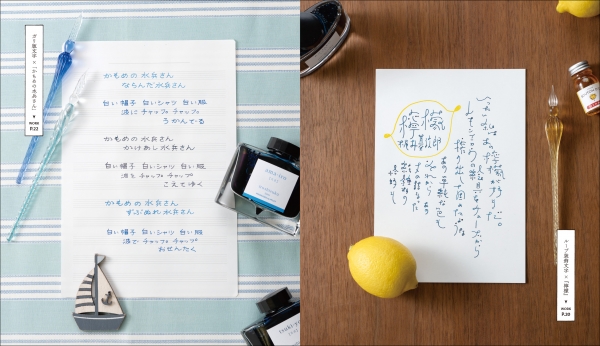 ガリ版文字×「かもめの水兵さん」
WORK
P.22
かもめの 水兵さん
ならんだ 水兵さん
白い帽子 白いシャツ 白い服
波に チャップ チャップ
うかんでる
かもめの 水兵さん
かけあし 水兵さん
白い帽子 白いシャツ 白い服
波を チャップ チャップ
こえてゆく
かもめの 水兵さん
ずぶぬれ 水兵さん
白い帽子 白いシャツ 白い服
波で チャップ チャップ
おせんたく
檸檬
梶井基次郎
いったい私はあの檸檬が好きだ。
レモンエロウの絵具をチューブから
搾り出して固めたような
あの単純な色も
それから あの
丈の詰まった
紡錘形の
恰好も
ループ装飾文字×「檸檬」
WORK
P.20